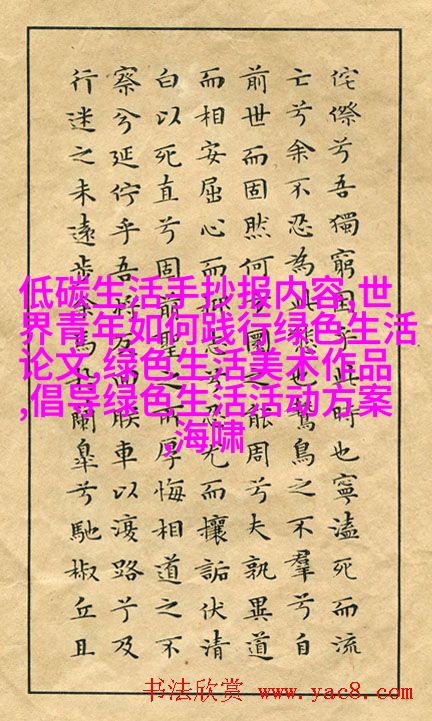 侘傺兮吾獨窮困乎此時也寧溘死而流
亡兮余不忍為此態也鷙鳥之不羣兮自
前世而固然何方圜之能周兮夫孰異道
而相安屈心而抑志兮忍尤而攘詬伏清
白以死直兮固前聖之所厚悔相道之不
察兮延佇乎吾將反回朕車以復路兮及
行迷之未遠步余馬於蘭皐兮馳椒丘且
低碳生活手抄报内容,世
界青年如何践行绿色生活
论文,绿色生活美术作品
,倡导绿色生活活动方案
,海啸
书法欣赏 www.yac8.com